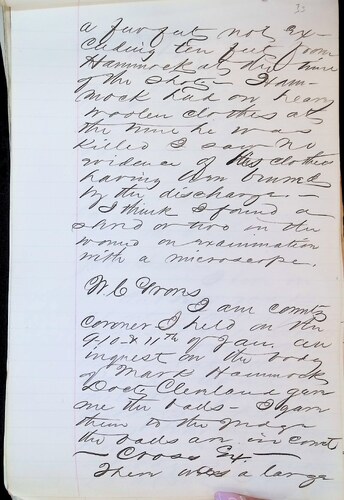 33
a few feet not ex-
ceeding ten feet from
Hammock at the time
of the shots. Ham-
mock had on heavy
woolen clothes at
the time he was
killed I saw no
evidence of his clothes
having been burned
by the discharge. -
I think I found a
shred or two in the
wound on examination
with a microscope.
W. C. Irons
I am county
coroner I held on the
9-10- & 11th of Jan. an
inquest on the body
of Mark Hammock
Doct Cleveland gave
me the balls - I gave
them to the Judge
the balls are in court
- Cross Ex -
There was a large